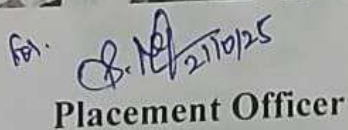 for.
21/10/25
Placement Officer